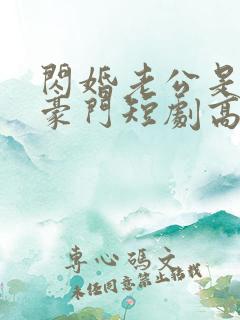 閃婚老公是
豪門短劇高
專心碼文
未經同意禁止轉載